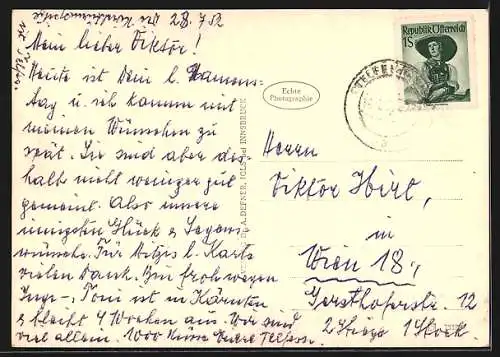 28.7.52
Mein lieber Viktor!
Heute ist Dein l. Namens-
tag u. ich komme mit
meinen Wünschen zu
spät. Sie sind aber des-
halb nicht weniger gut
gemeint. Also unsere
innigsten Glück & Segens
wünsche. Für Mitzis l. Karte
vielen Dank. Bin froh wegen
Inge -, Toni ist in Kärnten
& bleibt 4 Wochen aus. Wir sind
viel allein. 1000 Küsse Deine
Echte
Photographie
A. DEFNER, IGLS bei INNSBRUCK
Republik Österreich
1S
Herrn
Viktor Hirt,
in
Wien 18.,
Gersthoferstr. 12
2 Stiege 1 Stock.